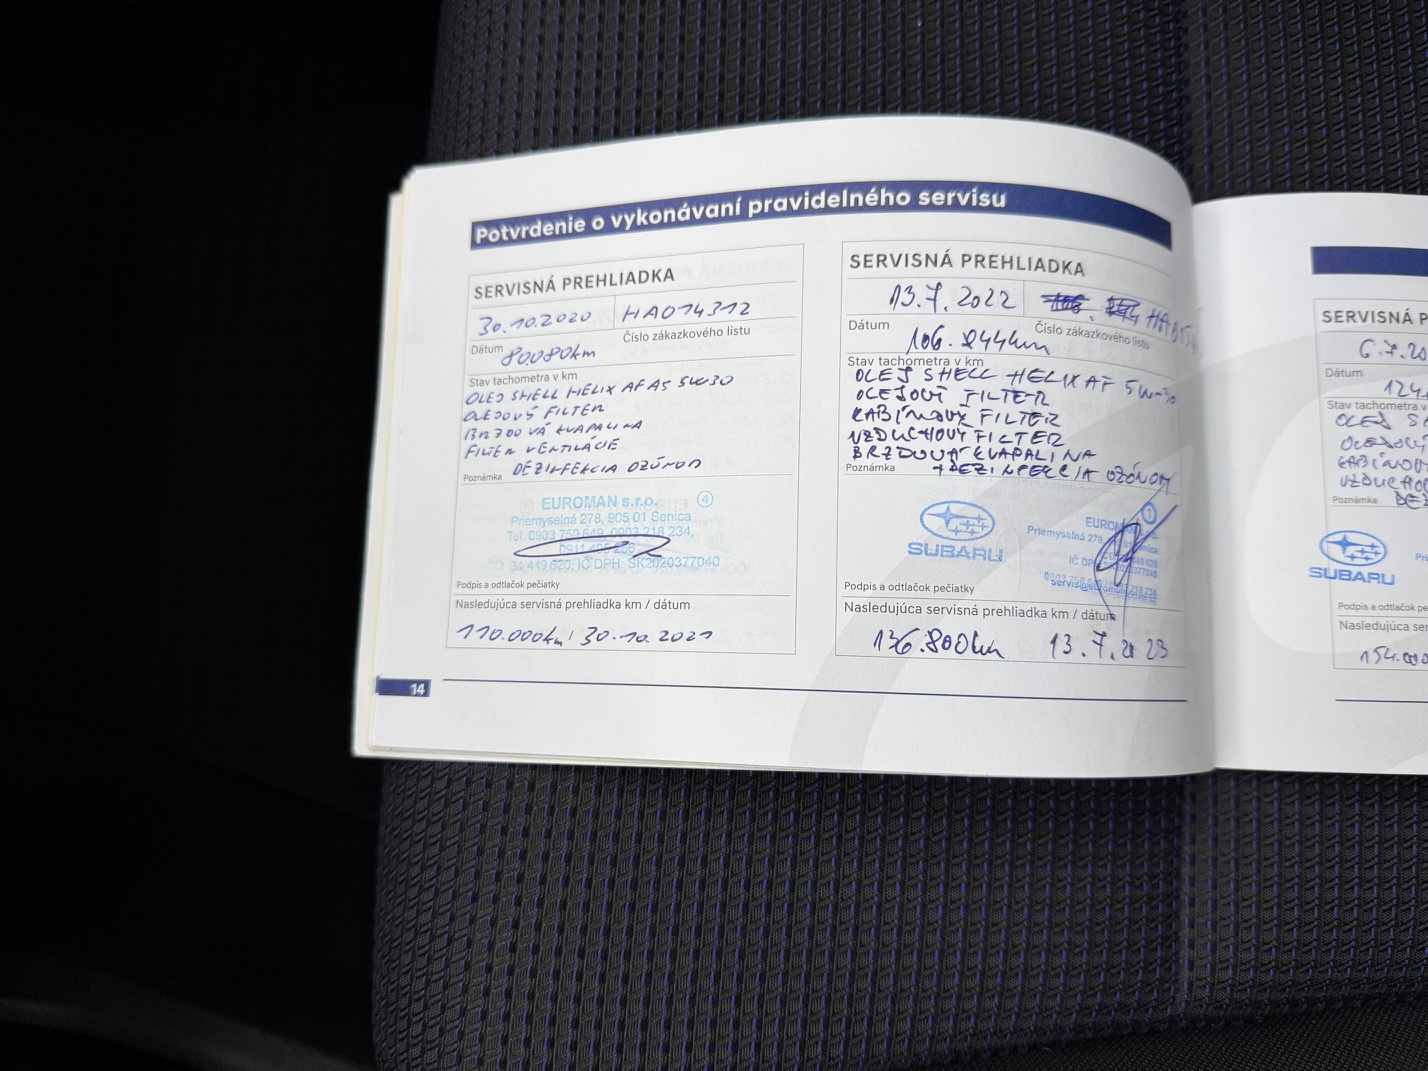 Potvrdenie o vykonávaní pravidelného servisu
SERVISNÁ PREHLIADKA
30.10.2020 HA014312
Dátum Číslo zákazkového listu
80.080km
Stav tachometra v km
OLEJ SHELL HELIX AF A5 5W30
OLEJOVÝ FILTER
BRZDOVÁ KVAPALINA
FILTER VENTILÁCIE
DEZINFEKCIA OZÓNOM
Poznámka
EUROMAN s.r.o. 4
Priemyselná 278, 905 01 Senica
Tel: 0903 750 649, 0903 218 234,
34 449 620, IČ DPH: SK2020377040
Podpis a odtlačok pečiatky
Nasledujúca servisná prehliadka km / dátum
110.000km / 30.10.2021
14
SERVISNÁ PREHLIADKA
13.7.2022
Dátum Číslo zákazkového listu
106.844km
Stav tachometra v km
OLEJ SHELL HELIX AF 5W-30
OLEJOVÝ FILTER
KABÍNOVÝ FILTER
VZDUCHOVÝ FILTER
BRZDOVÁ KVAPALINA
Poznámka + DEZINFEKCIA OZÓNOM
SUBARU
EUROMAN
Priemyselná 278
IČ DPH
Podpis a odtlačok pečiatky
Nasledujúca servisná prehliadka km / dátum
136.800km 13.7.2023
SERVISNÁ P
6.7.20
Dátum
124.
Stav tachometra v
OLEJ
OLEJOVÝ
KABÍNOV
VZDUCHO
Poznámka DEZ
SUBARU
Podpis a odtlačok pe
Nasledujúca ser
154.000